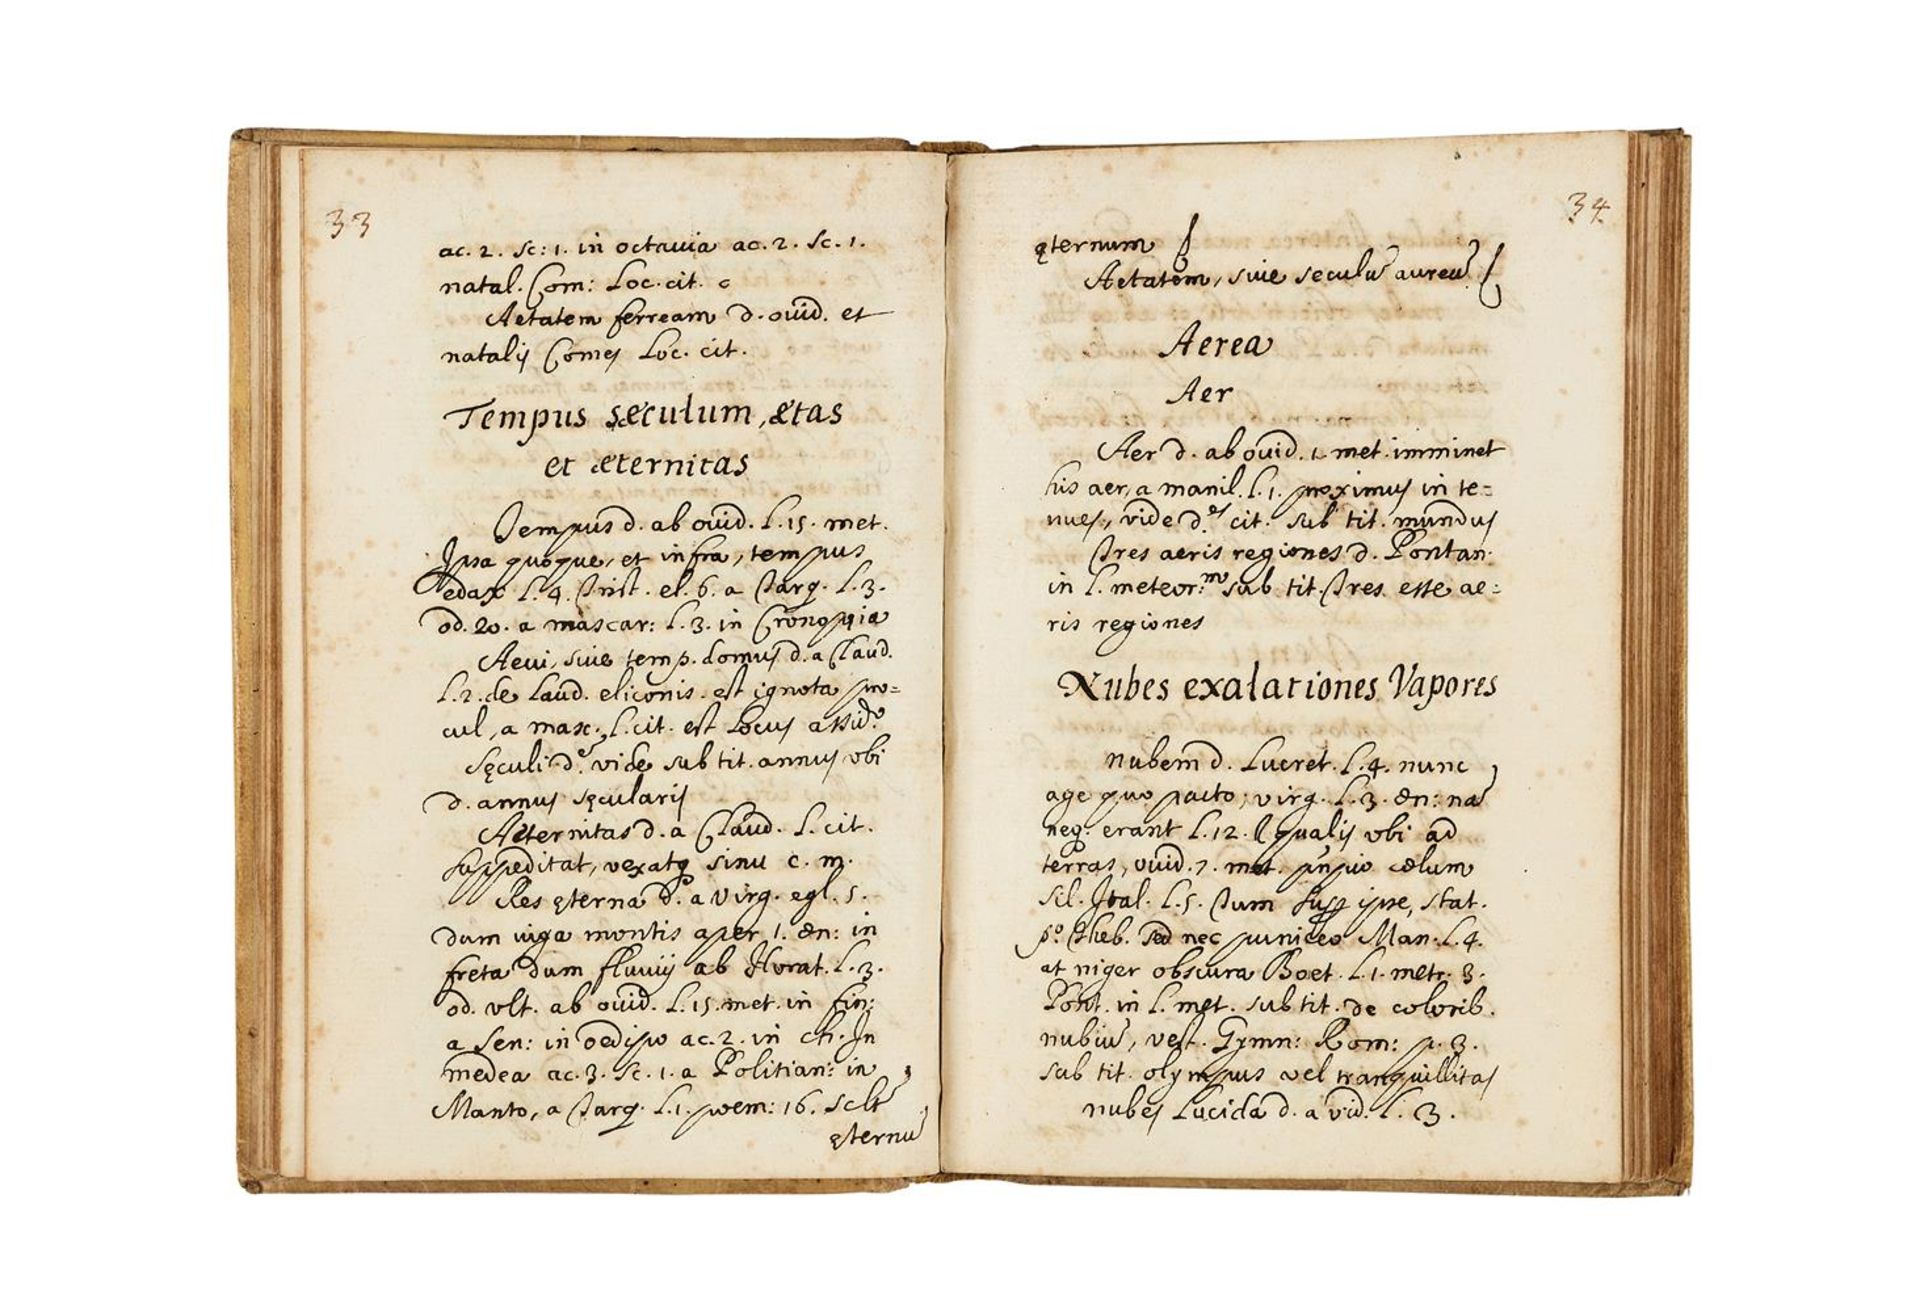 33
ac. 2. sc: 1. in octauia ac. 2. sc. 1.
natal. Com: Loc. cit. c
Aetatem ferream d. ouid. et
natalis Comes Loc. cit.
Tempus sæculum, ætas
et æternitas
Tempus d. ab ouid. l. 15. met.
Ipsa quoque, et infra, tempus
edax l. 4. Trist. el. 6. a Targ. l. 3.
od. 20. a mascar: l. 3. in
Aeui, siue temp. domus d. a Claud.
l. 2. de Laud. eliconis. est ignota pro=
cul, a masc. l. cit. est Locus
Sęculi d. vide sub tit. annus vbi
d. annus sęcularis
Aeternitas d. a Claud. l. cit.
suppeditat, vexatq sinu c. m.
Res ęterna d. a Virg. egl. 5.
dum iuga montis aper 1. æn: in
freta dum fluuij ab Horat. l. 3.
od. vlt. ab ouid. l. 15. met. in fin:
a Sen: in oedipo ac. 2. in ch. In
medea ac. 3. sc. 1. a Politian: in
Manto, a Targ. l. 1. poem: 16.
ęternu
34
ęternum
Aetatem, siue seculu aureu
Aerea
Aer
Aer d. ab ouid. 1. met. imminet
his aer, a manil. l. 1. proximus in te=
nues, vide d. cit. sub tit. mundus
Tres aeris regiones d. Pontan.
in l. meteor. sub tit. Tres esse ae=
ris regiones
Nubes exalationes Vapores
nubem d. Lucret. l. 4. nunc
age quo pacto, virg. l. 3. æn: na
neq. erant l. 12. qualis vbi ad
terras, ouid. 7. met. cælum
Sil. Ital. l. 5. Tum ipse, stat.
Theb. sed nec puniceo Man. l. 4.
at niger obscura Boet. l. 1. metr. 3.
Pont. in l. met. sub tit. de colorib.
nubiu, vest. Gymn: Rom: p. 3.
sub tit. olympus vel tranquillitas
nubes Lucida d. a vid. l. 3.